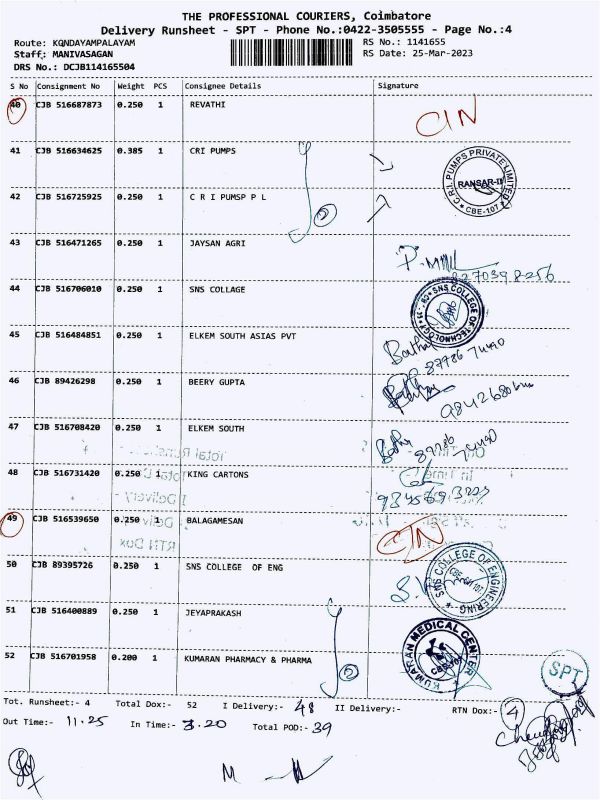 THE PROFESSIONAL COURIERS, Coimbatore
Delivery Runsheet - SPT - Phone No.:0422-3505555 - Page No.:4
Route: KONDAYAMPALAYAM
RS No.: 1141655
Staff: MANIVASAGAN
RS Date: 25-Mar-2023
DRS No.: DCJB114165504
S No Consignment No Weight PCS Consignee Details Signature
40 CJB 516687873 0.250 1 REVATHI CIN
41 CJB 516634625 0.385 1 CRI PUMPS
C.R.I. PUMPS PRIVATE LIMITED
CBE-107
42 CJB 516725925 0.250 1 C R I PUMSP P L
2
43 CJB 516471265 0.250 1 JAYSAN AGRI
8270398256
44 CJB 516706010 0.250 1 SNS COLLAGE
SNS COLLEGE OF TECHNOLOGY
45 CJB 516484851 0.250 1 ELKEM SOUTH ASIAS PVT
46 CJB 89426298 0.250 1 BEERY GUPTA
47 CJB 516708420 0.250 1 ELKEM SOUTH
48 CJB 516731420 0.250 1 KING CARTONS
49 CJB 516539650 0.250 1 BALAGAMESAN CIN
50 CJB 89395726 0.250 1 SNS COLLEGE OF ENG
SNS COLLEGE OF ENGINEERING
51 CJB 516400889 0.250 1 JEYAPRAKASH
52 CJB 516701958 0.200 1 KUMARAN PHARMACY & PHARMA
2
KUMARAN MEDICAL CENTER
SPT
Tot. Runsheet:- 4 Total Dox:- 52 I Delivery:- 48 II Delivery:- RTN Dox:- 4
Out Time:- 11.25 In Time:- 3.20 Total POD:- 39